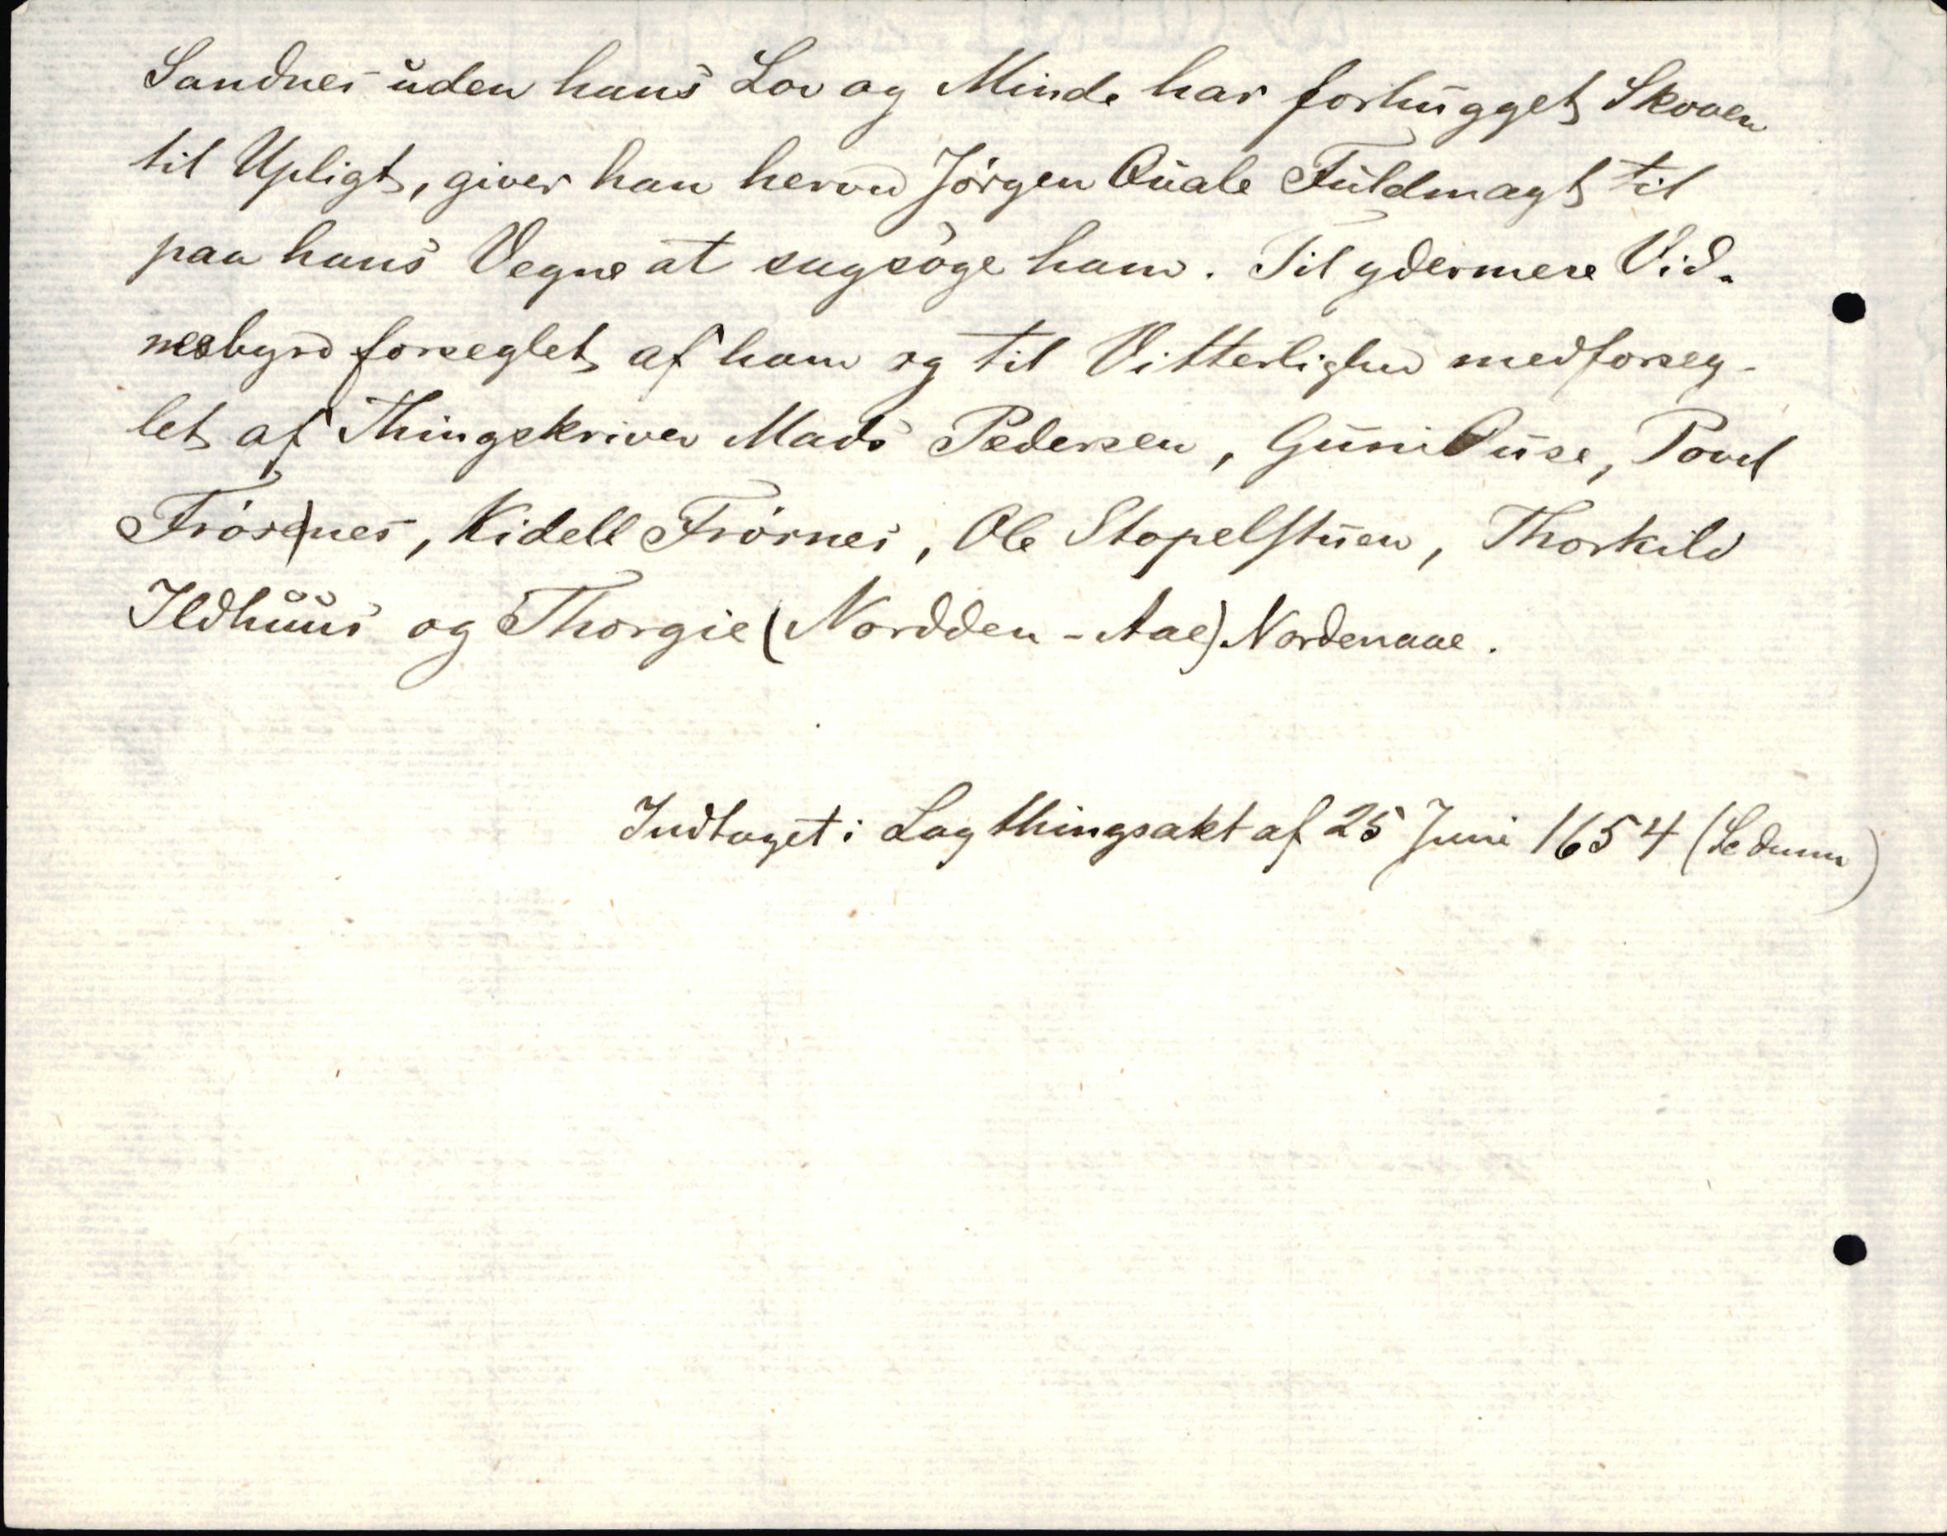 Sandnes uden hans Lov og Minde har forhugget Skoven
til Upligt, giver han herved Jörgen Quale Fuldmagt til
paa hans Vegne at sagsöge ham. Til ydermere Vid-
nesbyrd forseglet af ham og til Vitterlighed medforseg-
let af Thingskriver Mads Pedersen, Guni Ouse, Povel
Frösnes, Kidell Frörnes, Ole Stopelstuen, Thorkild
Ildhuus og Thorgie (Nordden-Aae) Nordenaae.
Indtaget i Lagthingsakt af 25 Juni 1654 (Sedumm)